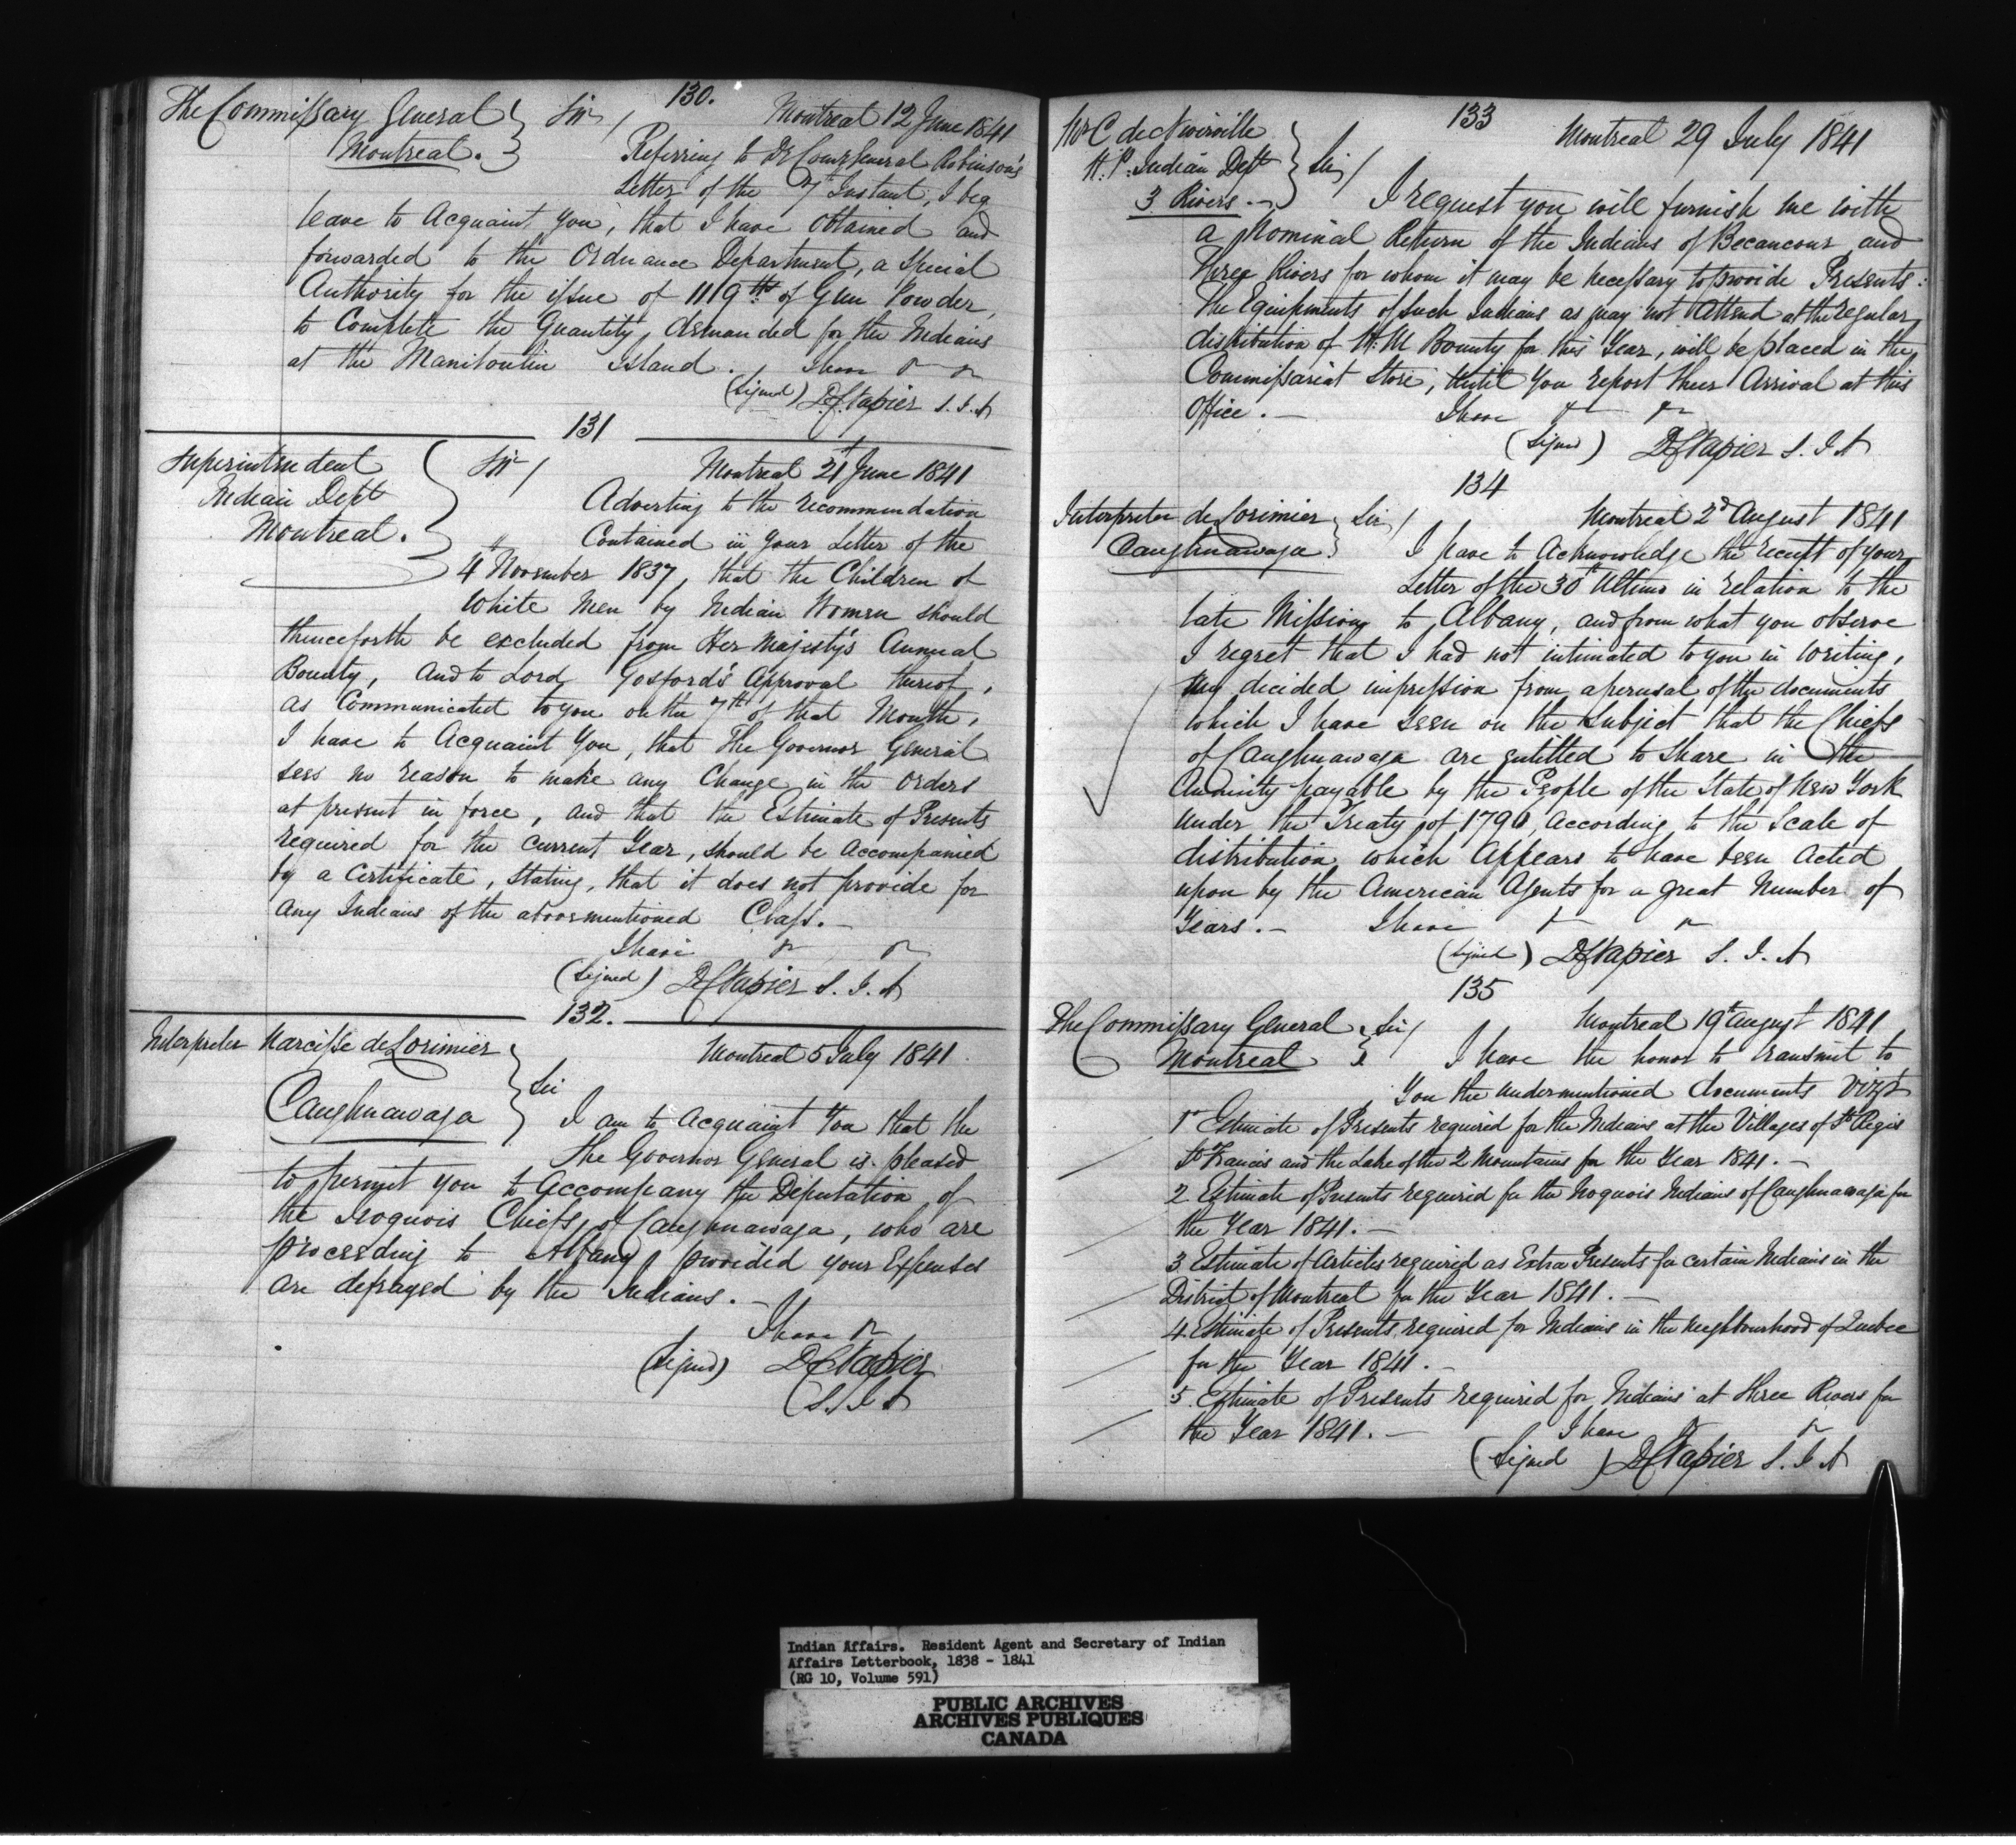 130.
The Commissary General
Montreal.
Sir
Montreal 12 June 1841
Referring to Dy Comy General Robinson's
Letter of the 7th Instant, I beg
leave to Acquaint you, that I have obtained and
forwarded to the Ordnance Department, a Special
Authority for the issue of 1119 lb of Gun Powder,
to Complete the Quantity demanded for the Indians
at the Manitoulin Island. I have &c &c
(Signed) D C Napier S. I. A
131
Superintendent
Indian Dept
Montreal.
Sir
Montreal 21st June 1841
Adverting to the recommendation
Contained in your Letter of the
4th November 1837, that the Children of
White Men by Indian Women should
thenceforth be excluded from Her Majesty's Annual
Bounty, and to Lord Gosford's Approval thereof,
as Communicated to you on the 7th of that Month,
I have to Acquaint You, that The Governor General
sees no reason to make any Change in the orders
at present in force, and that the Estimate of Presents
required for the Current Year, should be Accompanied
by a Certificate, Stating, that it does not provide for
any Indians of the abovementioned Class.
I have &c &c
(Signed) D C Napier S. I. A
132.
Interpreter Narcisse de Lorimier
Caughnawaga
Sir
Montreal 5 July 1841
I am to Acquaint You that the
The Governor General is pleased
to permit you to Accompany the Deputation of
the Iroquois Chiefs of Caughnawaga, who are
proceeding to Albany provided your Expenses
are defrayed by the Indians.
I have &c
(Signed) D C Napier
S. I. A
133
Mr C de Niverville
H. P. Indian Dept
3 Rivers
Sir
Montreal 29 July 1841
I request you will furnish me with
a Nominal Return of the Indians of Becancour and
Three Rivers for whom it may be necessary to provide Presents:
The Equipments of such Indians as may not Attend at the regular
distribution of H. M Bounty for this Year, will be placed in the
Commissariat Store, until You report their Arrival at this
Office. I have &c &c
(Signed) D C Napier S. I. A
134
Interpreter de Lorimier
Caughnawaga
Sir
Montreal 2d August 1841
I have to Acknowledge the receipt of your
Letter of the 30th Ultimo in relation to the
late Mission to Albany, and from what you observe
I regret that I had not intimated to you in Writing,
my decided impression from a perusal of the documents
which I have seen on the Subject that the Chiefs
of Caughnawaga are entitled to Share in the
Annuity payable by the People of the State of New York
under the Treaty of 1796, according to the Scale of
distribution which Appears to have been Acted
upon by the American Agents for a great Number of
Years. I have &c &c
(Signed) D C Napier S. I. A
135
The Commissary General
Montreal
Sir
Montreal 19th August 1841
I have the honor to transmit to
You the undermentioned documents Vizt
1st Estimate of Presents required for the Indians at the Villages of St Regis
St Francis and the Lake of the 2 Mountains for the Year 1841.
2 Estimate of Presents required for the Iroquois Indians of Caughnawaga for
the Year 1841.
3 Estimate of Articles required as Extra Presents for certain Indians in the
District of Montreal for the Year 1841.
4 Estimate of Presents required for Indians in the Neighbourhood of Quebec
for the Year 1841.
5 Estimate of Presents required for Indians at Three Rivers for
the Year 1841.
I have &c &c
(Signed) D C Napier S. I. A
Indian Affairs. Resident Agent and Secretary of Indian
Affairs Letterbook, 1838 - 1841
(RG 10, Volume 591)
PUBLIC ARCHIVES
ARCHIVES PUBLIQUES
CANADA